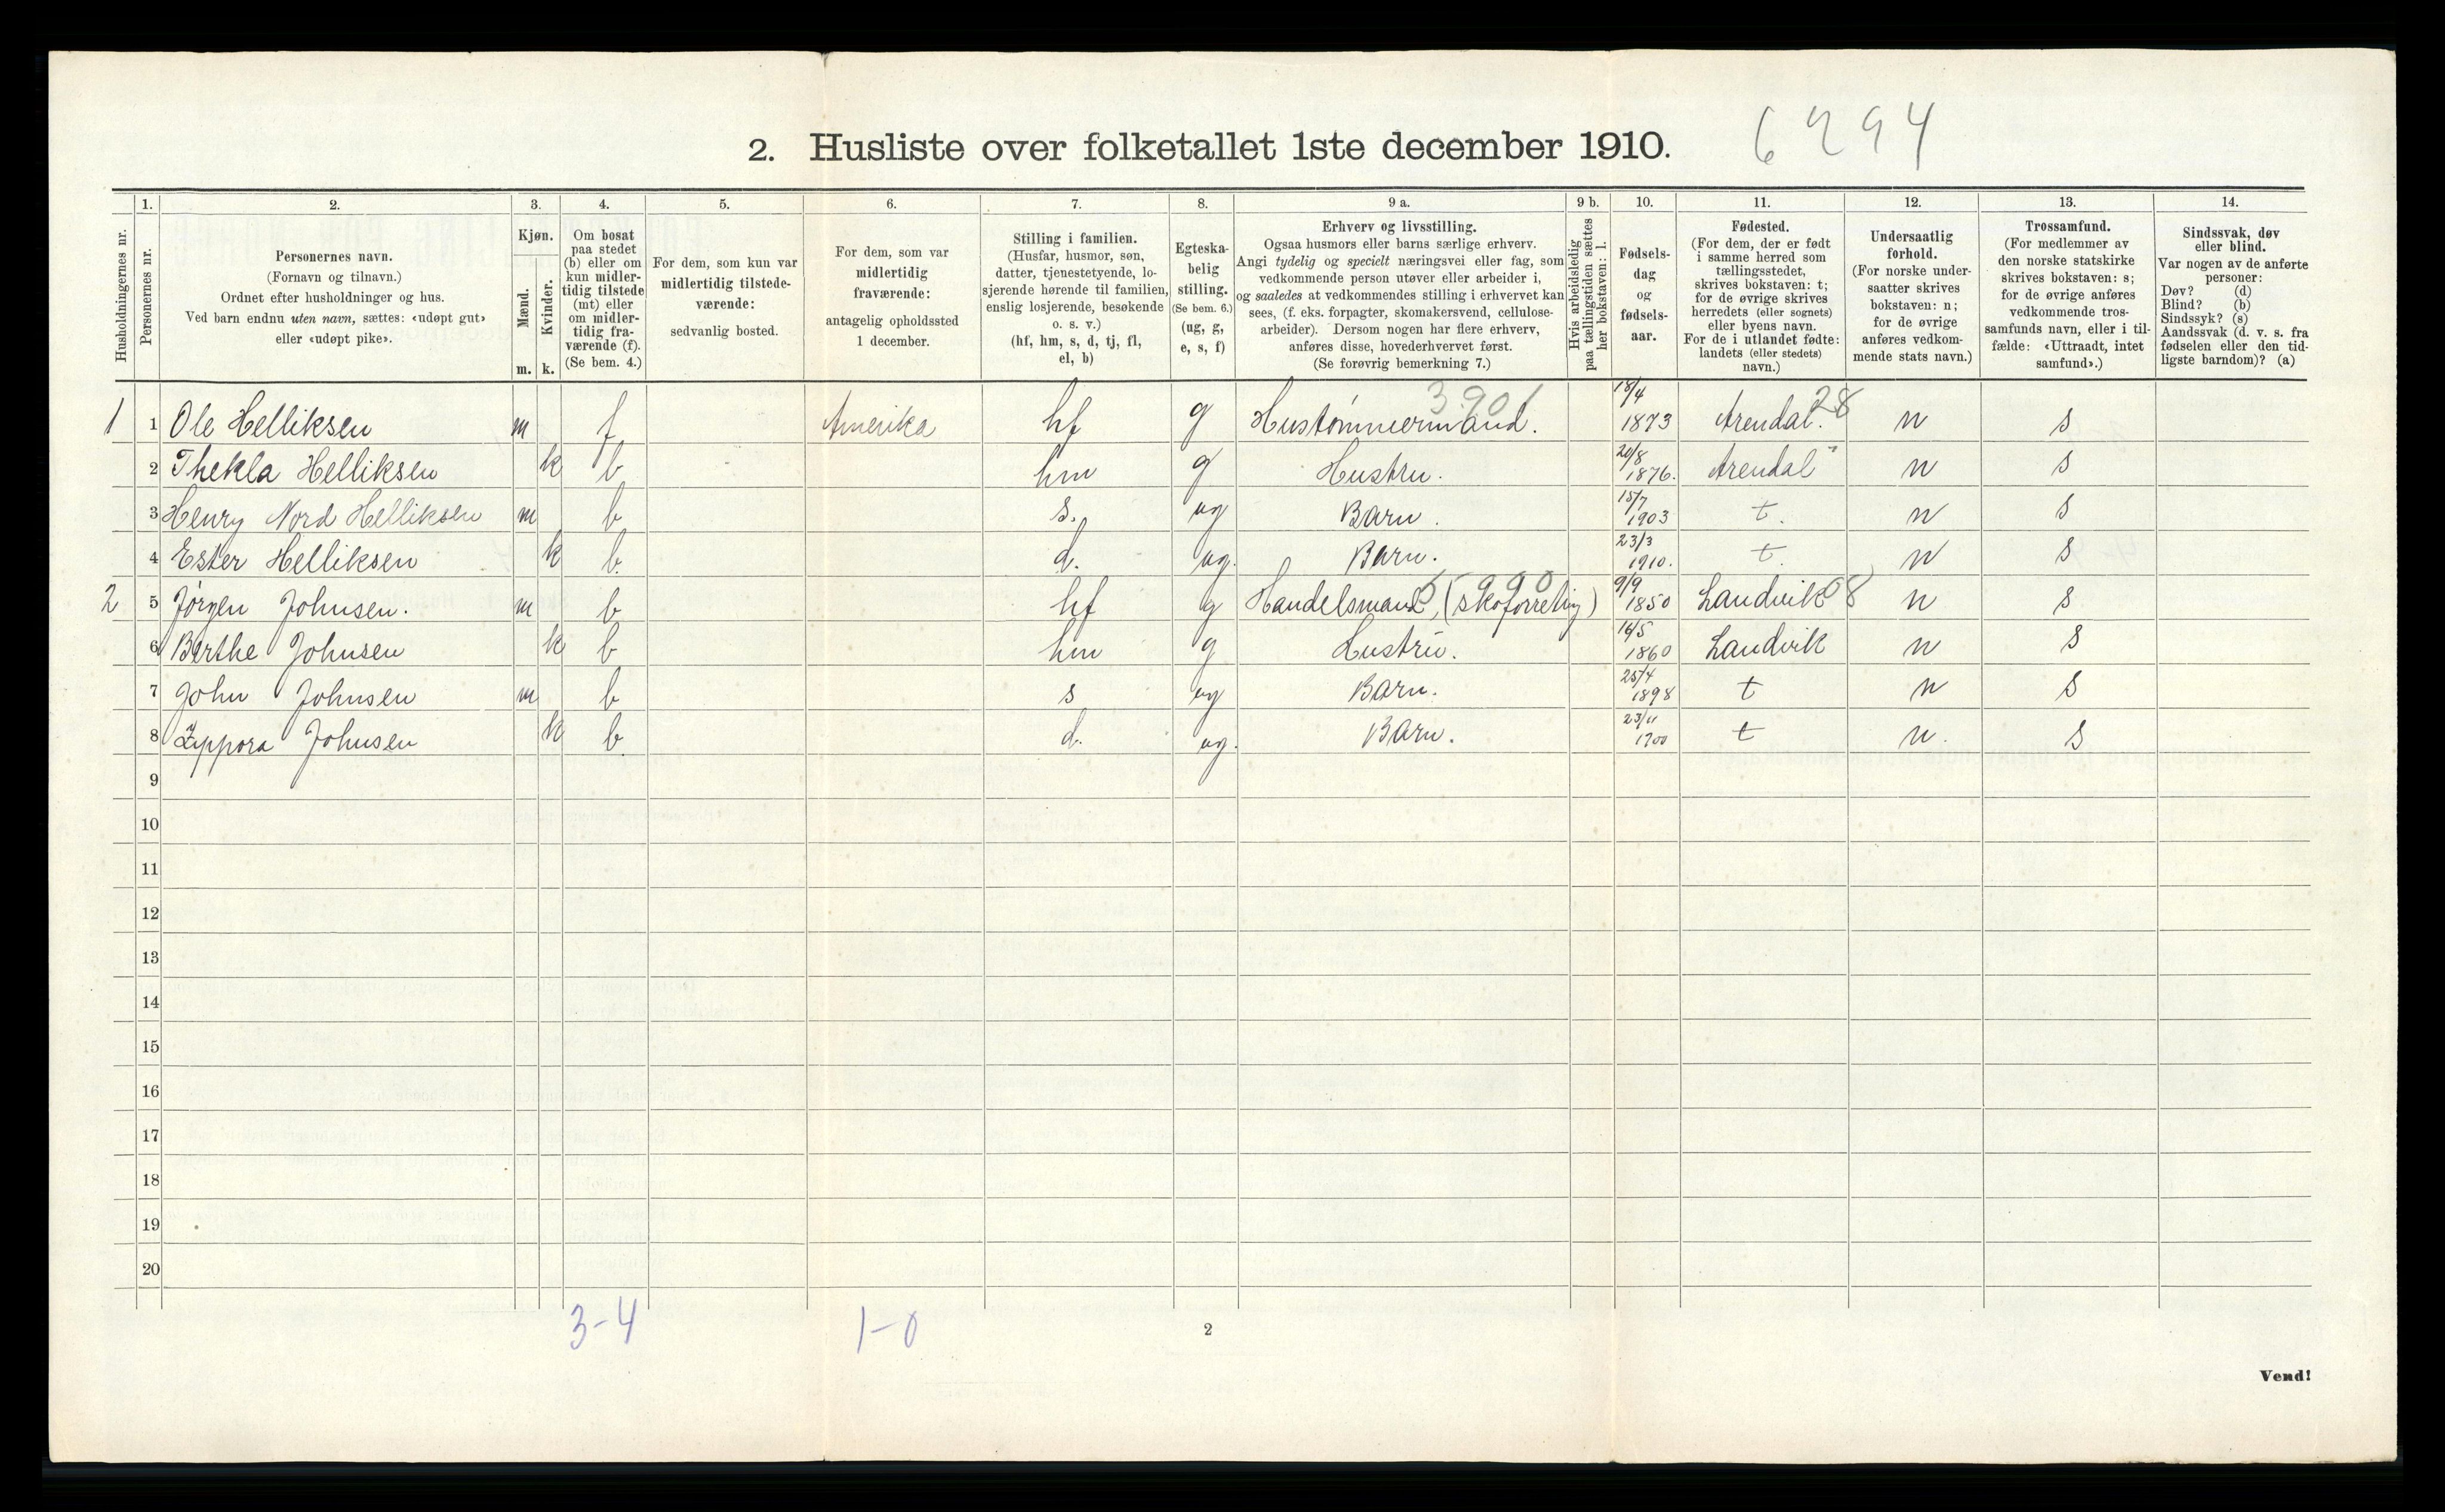 2. Husliste over folketallet 1ste december 1910. 6294
1. 2. 3. 4. 5. 6. 7. 8. 9 a. 9 b. 10. 11. 12. 13. 14.
Husholdningernes nr.
Personernes nr.
Personernes navn.
(Fornavn og tilnavn.)
Ordnet efter husholdninger og hus.
Ved barn endnu uten navn, sættes: «udøpt gut»
eller «udøpt pike».
Kjøn.
Mænd.
Kvinder.
m. k.
Om bosat
paa stedet
(b) eller om
kun midler-
tidig tilstede
(mt) eller
om midler-
tidig fra-
værende (f).
(Se bem. 4.)
For dem, som kun var
midlertidig tilstede-
værende:
sedvanlig bosted.
For dem, som var
midlertidig
fraværende:
antagelig opholdssted
1 december.
Stilling i familien.
(Husfar, husmor, søn,
datter, tjenestetyende, lo-
sjerende hørende til familien,
enslig losjerende, besøkende
o. s. v.)
(hf, hm, s, d, tj, fl,
el, b)
Egteska-
belig
stilling.
(Se bem. 6.)
(ug, g,
e, s, f)
Erhverv og livsstilling.
Ogsaa husmors eller barns særlige erhverv.
Angi tydelig og specielt næringsvei eller fag, som
vedkommende person utøver eller arbeider i,
og saaledes at vedkommendes stilling i erhvervet kan
sees, (f. eks. forpagter, skomakersvend, cellulose-
arbeider). Dersom nogen har flere erhverv,
anføres disse, hovederhvervet først.
(Se forøvrig bemerkning 7.)
Hvis arbeidsledig
paa tællingstiden sættes
her bokstaven: l.
Fødsels-
dag
og
fødsels-
aar.
Fødested.
(For dem, der er født
i samme herred som
tællingsstedet,
skrives bokstaven: t;
for de øvrige skrives
herredets (eller sognets)
eller byens navn.
For de i utlandet fødte:
landets (eller stedets)
navn.)
Undersaatlig
forhold.
(For norske under-
saatter skrives
bokstaven: n;
for de øvrige
anføres vedkom-
mende stats navn.)
Trossamfund.
(For medlemmer av
den norske statskirke
skrives bokstaven: s;
for de øvrige anføres
vedkommende tros-
samfunds navn, eller i til-
fælde: «Uttraadt, intet
samfund».)
Sindssvak, døv
eller blind.
Var nogen av de anførte
personer:
Døv? (d)
Blind? (b)
Sindssyk? (s)
Aandssvak (d. v. s. fra
fødselen eller den tid-
ligste barndom)? (a)
1 1 Ole Helliksen m f Amerika hf g Hustømmermand. 3901 18/4 1873 Arendal. 28 n s
2 Thekla Helliksen k b hm g Hustru. 20/8 1876. Arendal " n s
3 Henry Nord Helliksen m b s. ug Barn. 15/7 1903 t. n s
4 Ester Helliksen k b. d. ug. Barn. 23/3 1910. t. n s
2 5 Jörgen Johnsen. m b hf g Handelsmand, (skoforretnig) 5990 9/9 1850 Landvik 08 n s
6 Berthe Johnsen k b hm g Hustru. 16/5 1860 Landvik n s
7 John Johnsen m b s ug Barn. 25/4 1898 t n s
8 Zippora Johnsen k b d. ug. Barn. 23/11 1900 t n. s
9
10
11
12
13
14
15
16
17
18
19
20
3-4 1-0
2
Vend!